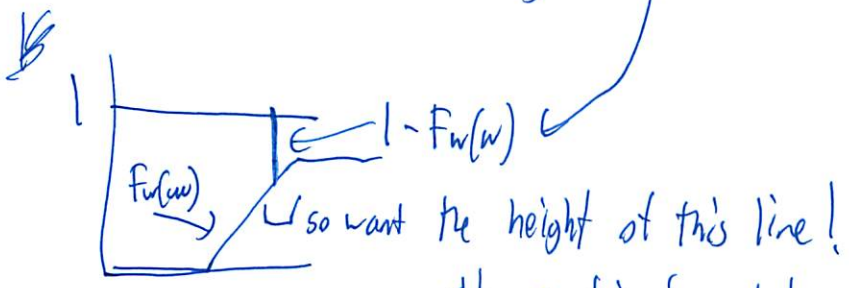 1
1 - Fw(w)
Fw(w)
so want the height of this line!